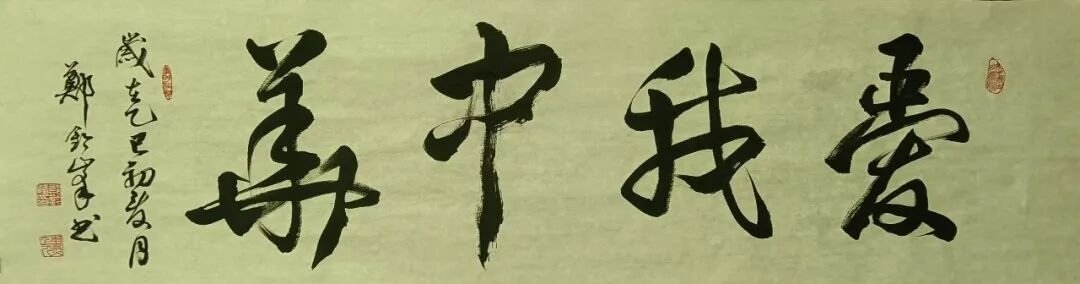 愛我中華
歲在乙巳初夏月
鄭鈴峯书